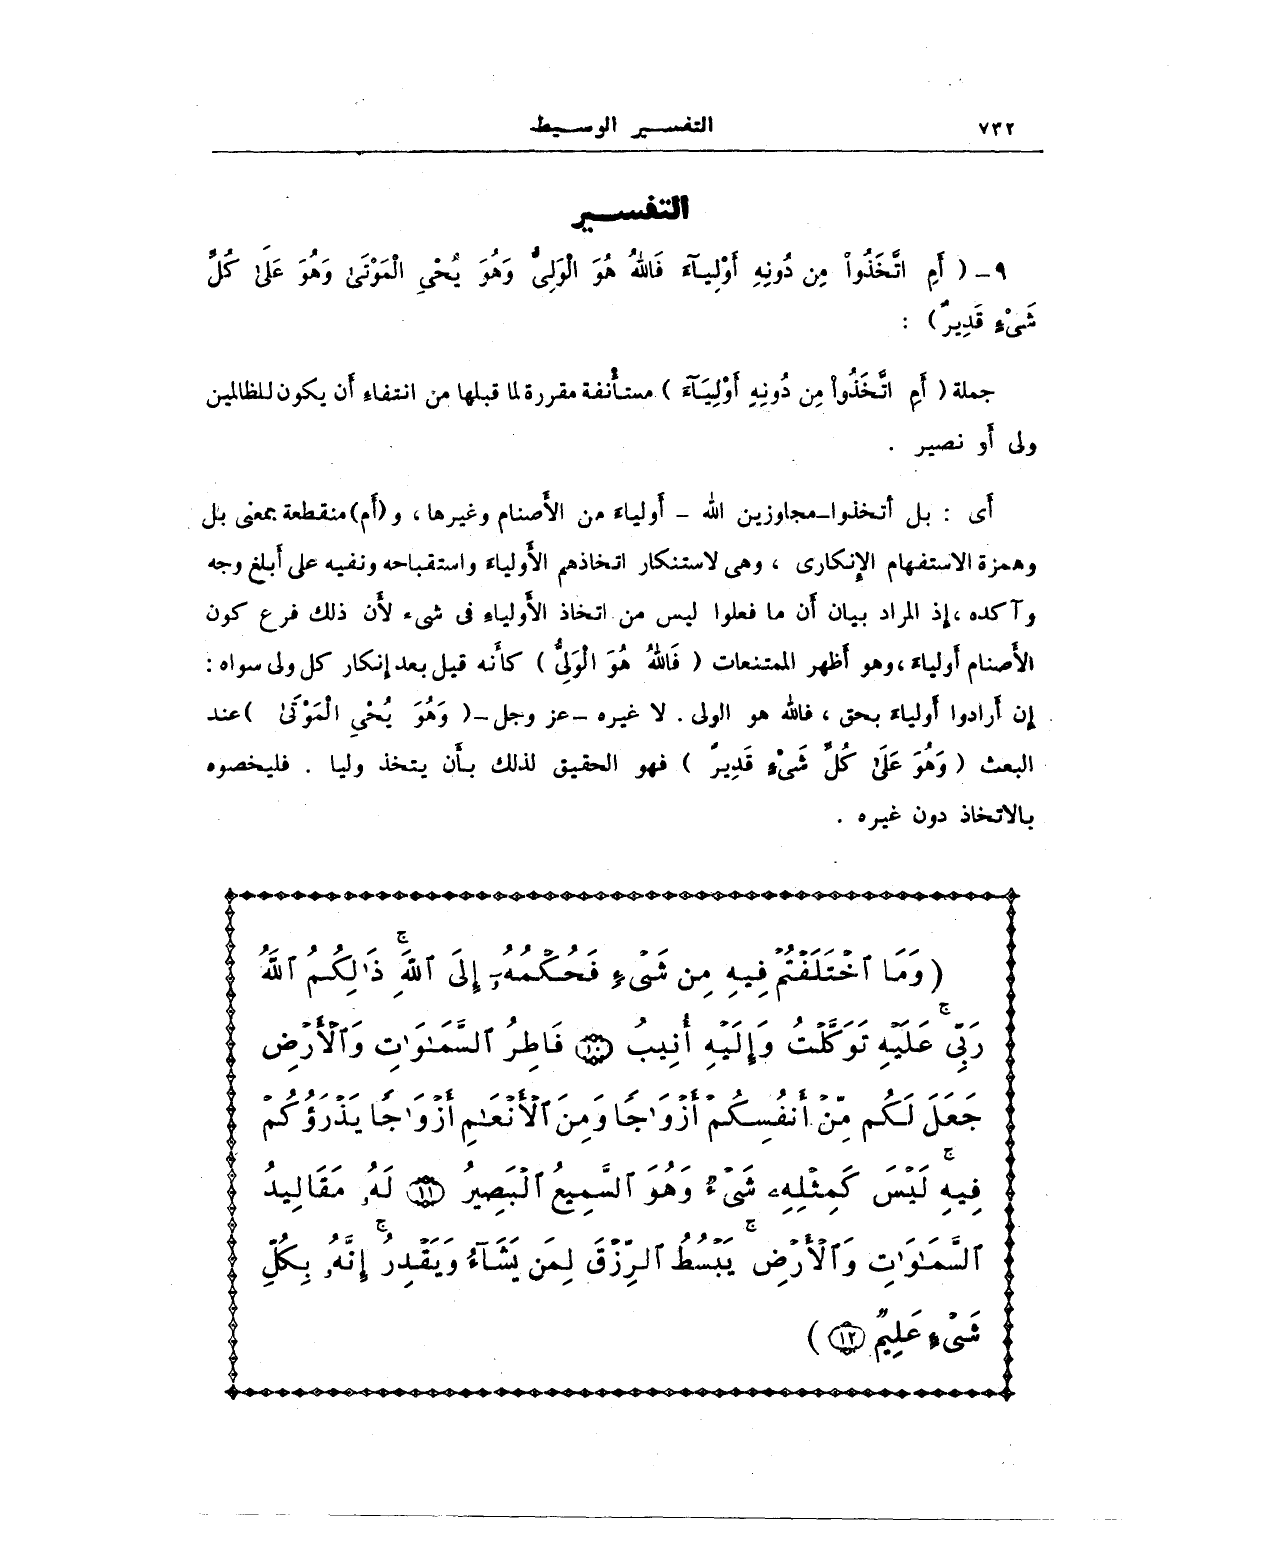 ٧٣٢
التفسير الوسيط
التفسير
٩ـ ( أَمِ اتَّخَذُواْ مِن دُونِهِ أَوْلِيـآءَ فَاللهُ هُوَ الْوَلِىُّ وَهُوَ يُحْيِ الْمَوْتَىٰ وَهُوَ عَلَىٰ كُلِّ
شَىْءٍ قَدِيرٌ ) :
جملة ( أَمِ اتَّخَذُواْ مِن دُونِهِ أَوْلِيَآءَ ) مستأنفة مقررة لما قبلها من انتفاء أن يكون للظالمين
ولى أو نصير .
أى : بل أتخذوا ـ مجاوزين الله ـ أولياء من الأصنام وغيرها ، و (أم) منقطعة بمعنى بل
وهمزة الاستفهام الإنكارى ، وهى لاستنكار اتخاذهم الأولياء واستقباحه ونفيه على أبلغ وجه
وآكده ، إذ المراد بيان أن ما فعلوا ليس من اتخاذ الأولياء فى شىء لأن ذلك فرع كون
الأصنام أولياء ، وهو أظهر الممتنعات ( فَاللهُ هُوَ الْوَلِىُّ ) كأنه قيل بعد إنكار كل ولى سواه :
إن أرادوا أولياء بحق ، فالله هو الولى . لا غيره ـ عز وجل ـ ( وَهُوَ يُحْيِ الْمَوْتَىٰ ) عند
البعث ( وَهُوَ عَلَىٰ كُلِّ شَىْءٍ قَدِيرٌ ) فهو الحقيق لذلك بأن يتخذ وليا . فليخصوه
بالاتخاذ دون غيره .
( وَمَا ٱخْتَلَفْتُمْ فِيهِ مِن شَىْءٍ فَحُكْمُهُۥٓ إِلَى ٱللَّهِ ۚ ذَٰلِكُمُ ٱللَّهُ
رَبِّى عَلَيْهِ تَوَكَّلْتُ وَإِلَيْهِ أُنِيبُ ۝١٠ فَاطِرُ ٱلسَّمَـٰوَٰتِ وَٱلْأَرْضِ ۚ
جَعَلَ لَكُم مِّنْ أَنفُسِكُمْ أَزْوَٰجًا وَمِنَ ٱلْأَنْعَـٰمِ أَزْوَٰجًا يَذْرَؤُكُمْ
فِيهِ ۚ لَيْسَ كَمِثْلِهِۦ شَىْءٌ وَهُوَ ٱلسَّمِيعُ ٱلْبَصِيرُ ۝١١ لَهُۥ مَقَالِيدُ
ٱلسَّمَـٰوَٰتِ وَٱلْأَرْضِ ۚ يَبْسُطُ ٱلرِّزْقَ لِمَن يَشَآءُ وَيَقْدِرُ ۚ إِنَّهُۥ بِكُلِّ
شَىْءٍ عَلِيمٌ ۝١٢ )